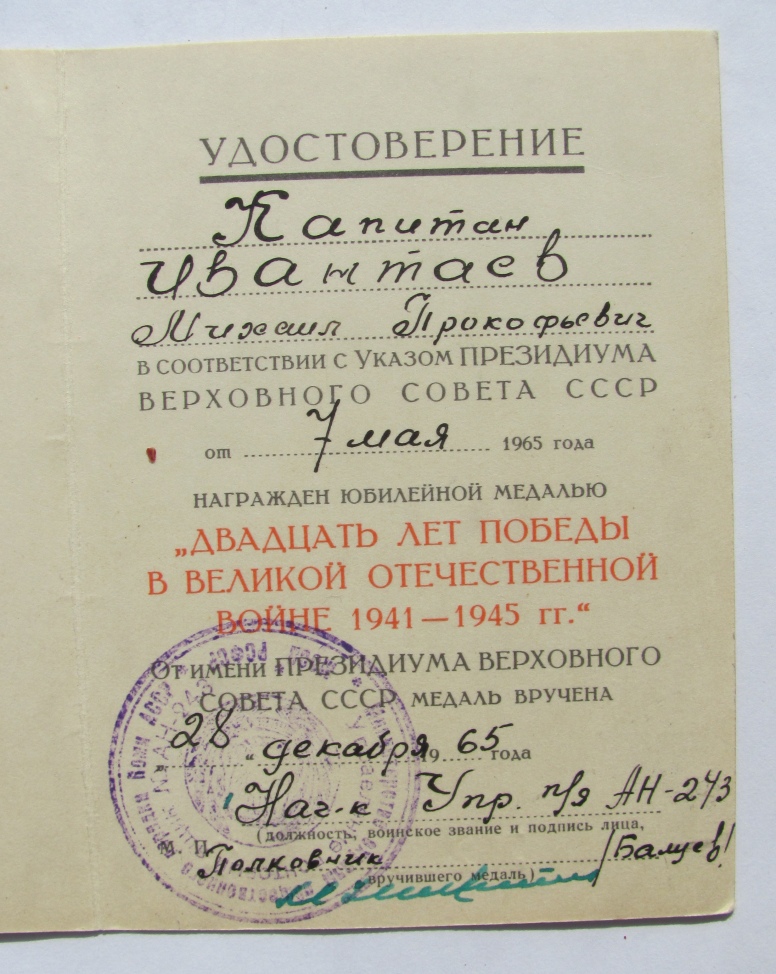 УДОСТОВЕРЕНИЕ
Капитан
Ивантаев
Михаил Прокофьевич
В СООТВЕТСТВИИ С УКАЗОМ ПРЕЗИДИУМА
ВЕРХОВНОГО СОВЕТА СССР
от 7 мая 1965 года
НАГРАЖДЕН ЮБИЛЕЙНОЙ МЕДАЛЬЮ
„ДВАДЦАТЬ ЛЕТ ПОБЕДЫ
В ВЕЛИКОЙ ОТЕЧЕСТВЕННОЙ
ВОЙНЕ 1941—1945 гг.“
ОТ ИМЕНИ ПРЕЗИДИУМА ВЕРХОВНОГО
СОВЕТА СССР МЕДАЛЬ ВРУЧЕНА
„28“ декабря 1965 года
Нач-к Упр. п/я АН-243
(должность, воинское звание и подпись лица,
М. П.
Полковник
вручившего медаль)